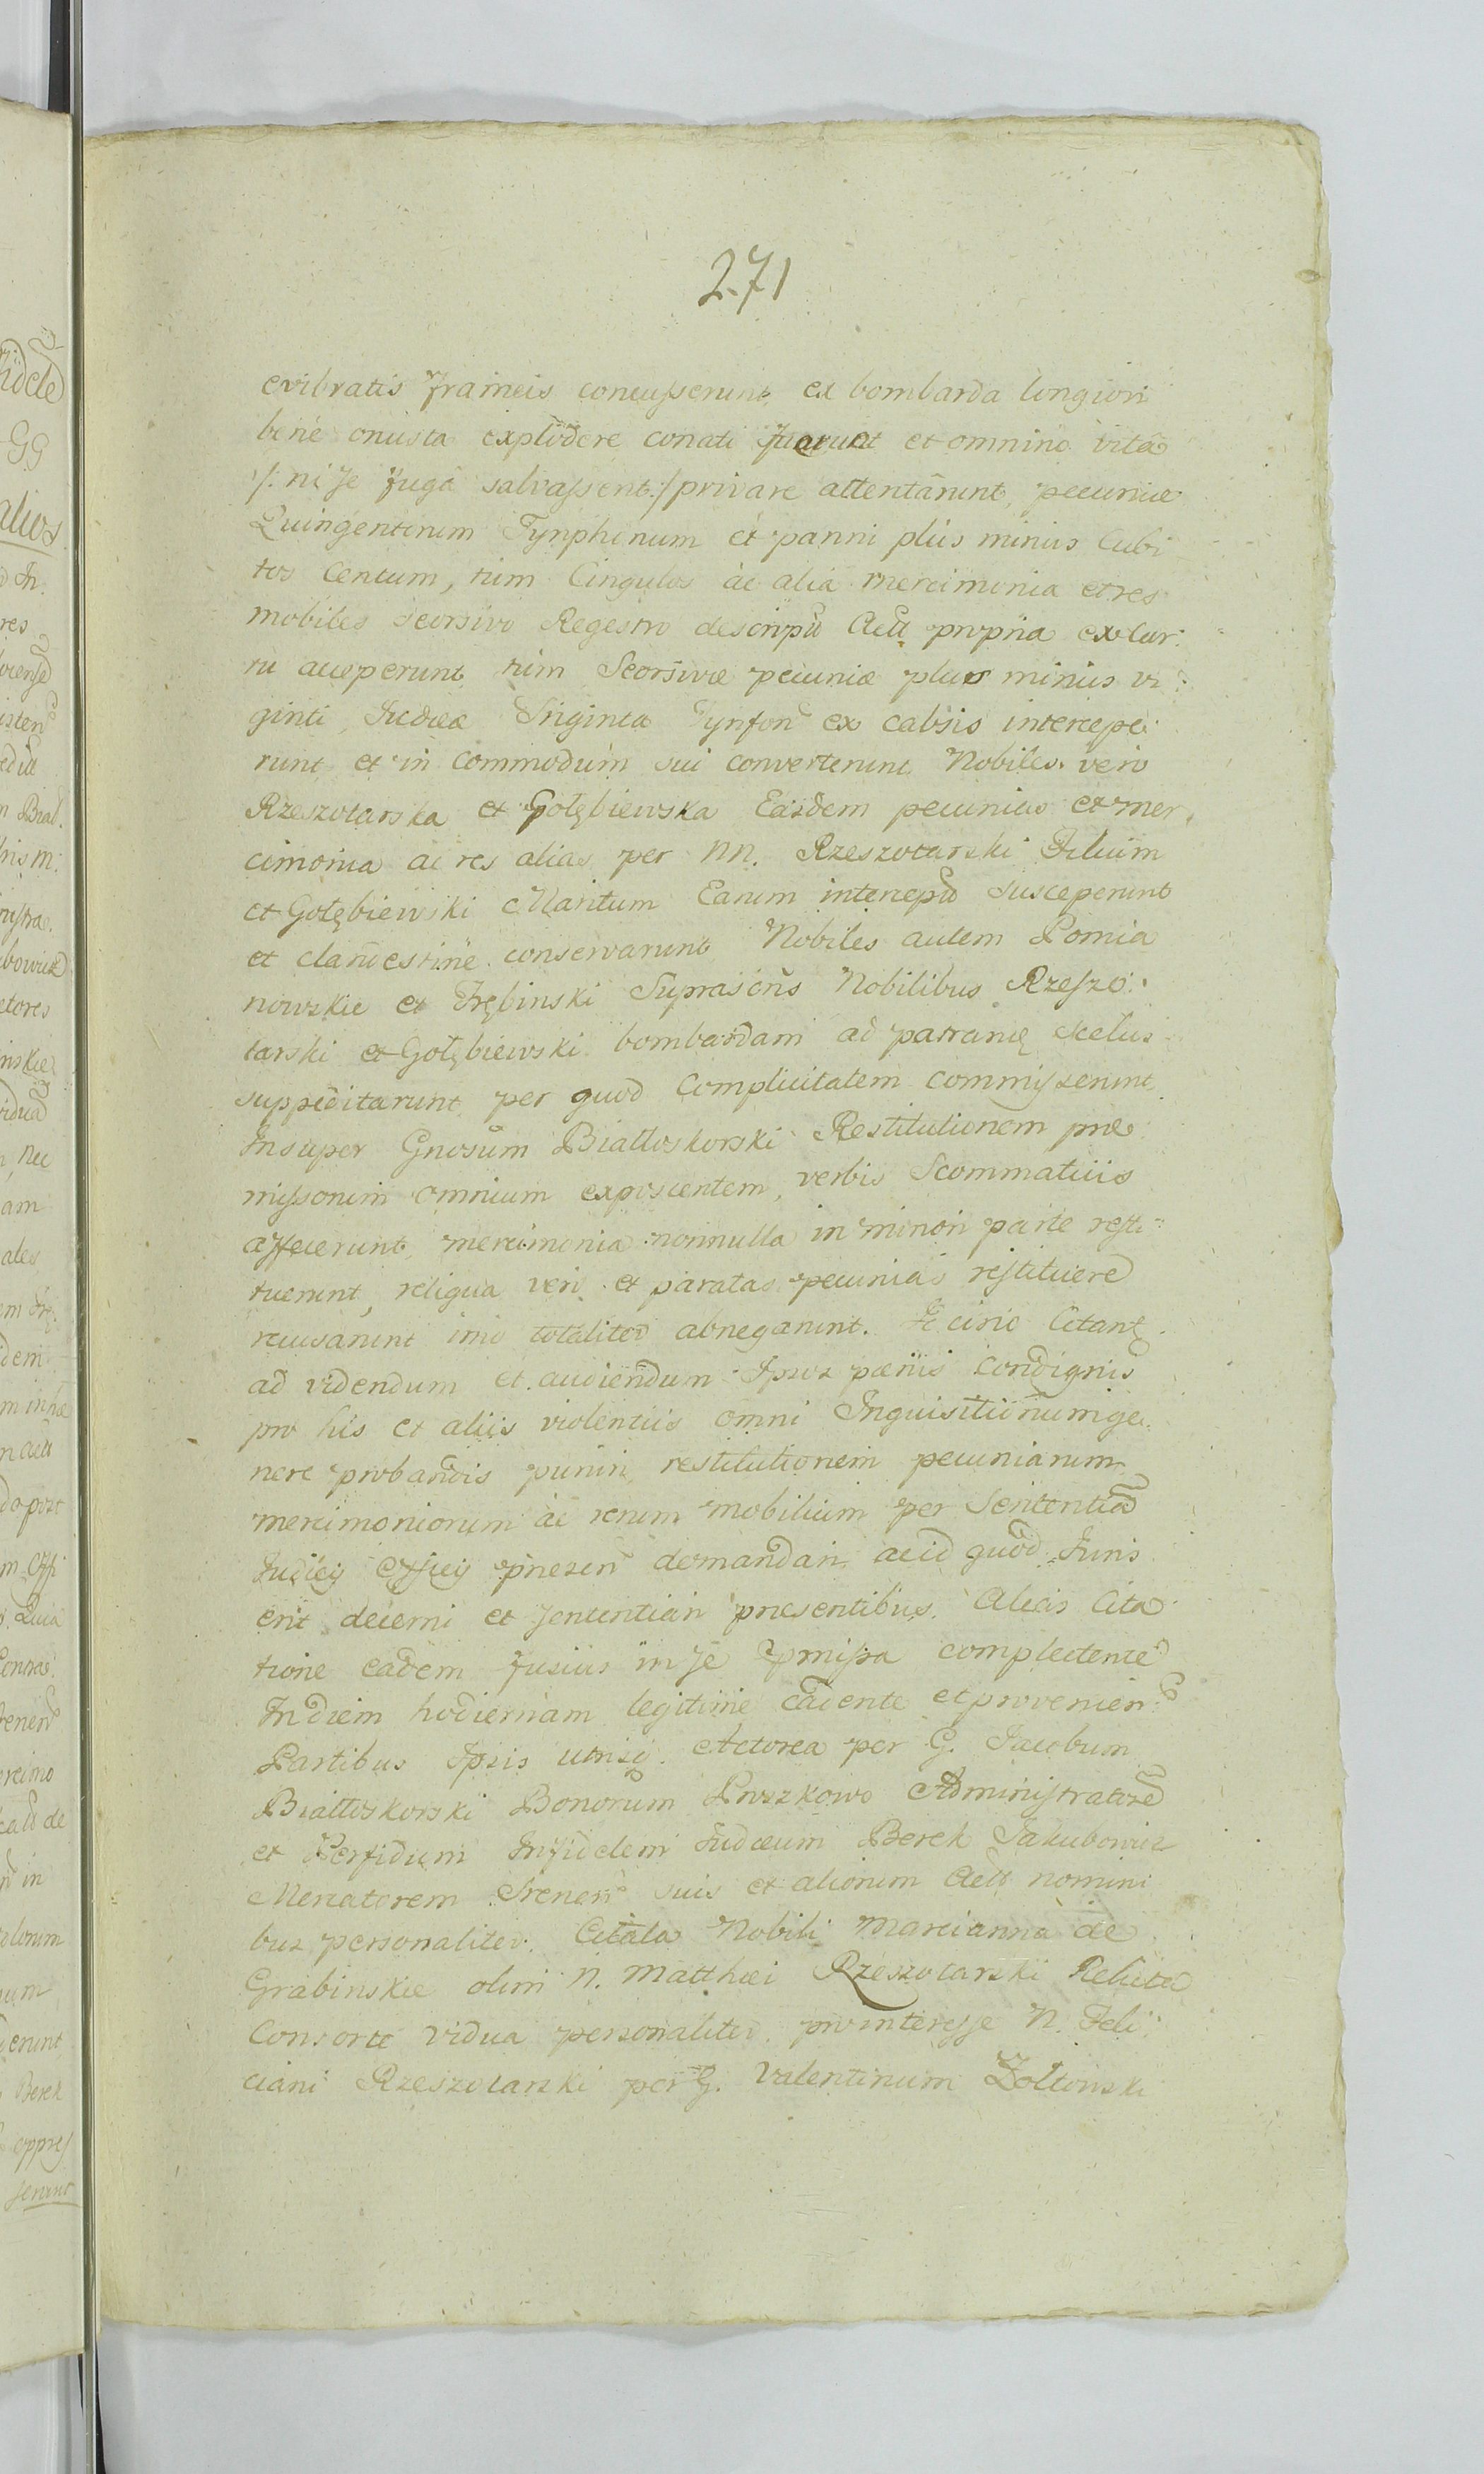 271
evibratis frameis concusserunt, ex bombarda longiori
bene onusta explodere conati fuerunt et omnino vita
/: ni se fuga salvassent :/ privare attentarunt, pecuniae
Quingentorum Tynphonum et panni plus minus Cubi
tos Centum, tum Cingulos ac alia mercimonia et res
mobiles seorsivo Regestro descriptu Actt propria ex Cur:
ru acceperunt, tum Seorsivae pecuniae plus minus vi:
ginti, Judaeae Triginta Tynfon ex cabsis intercepe:
runt et in commodum sui converterunt. Nobiles vero
Rzeszotarska et Gołębiewska Easdem pecunias et mer,
cimonia ac res alias per NN. Rzeszotarski Filium
et Gołębiewski Maritum Earum intercept susceperunt
et clandestine conservarunt Nobiles autem Pomia
nowskie et Trębinski Suprascris Nobilibus Rzeszo:
tarski et Gołębiewski bombardam ad patrandę scelus
suppeditarunt, per quod Complicitatem commiserunt
Insuper Gnosum Białłoskorski Restitutionem prae
missorum omnium exposcentem, verbis Scommaticis
affecerunt, mercimonia nonnulla in minori parte resti:
tuerunt, reliqua vero et paratas pecunias restituere
recusarunt imo totaliter abnegarunt. Citant
ad videndum et audiendum Ipsos paenis Condignis
pro his et aliis violentiis omni Inquisitionum ge:
nere probandis puniri, restitutionem pecuniarum
mercimoniorum ac rerum mobilium per Sententia
Judicij Officij praesen demandari, ac id quod Juris
erit decerni et sententiari praesentibus. Alias Cita
tione eadem fusius in se pmissa complectente
In diem hodiernam legitime cadente et provenien
Partibus Ipsis utrisq. Actorea per G. Jacobum
Białłoskorski Bonorum Pruszkowo Administratore
et Perfidum Infidelem Judaeum Berek Jakubowicz
Mercatorem Srenen suis et aliorum Actt nomini
bus personaliter. Citata Nobili Marcianna de
Grabinskie olim N. Matthaei Rzeszotarski Relicta
Consorte vidua personaliter. pro interesse N. Feli:
ciani Rzeszotarski per G. Valentinum Zołtowski